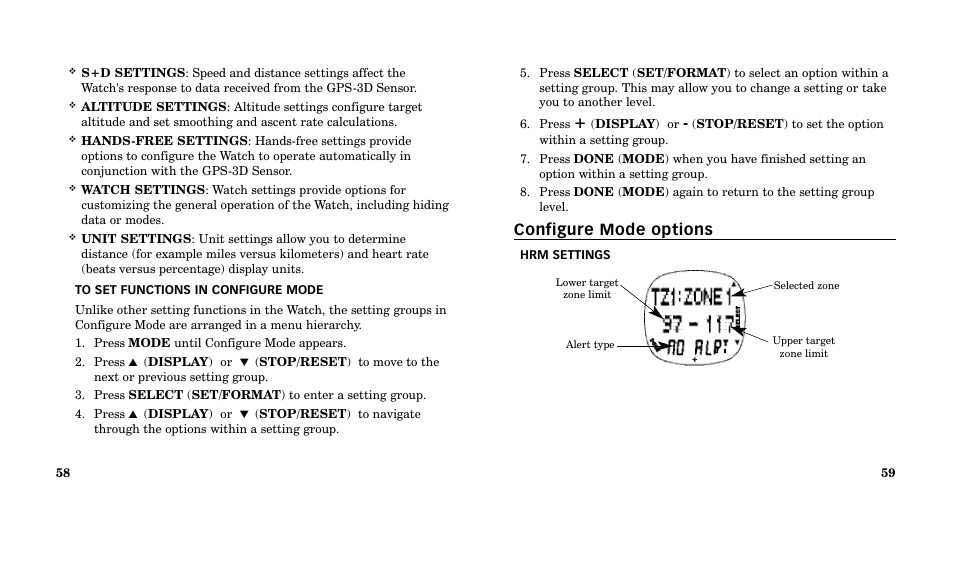 ❖ S+D SETTINGS: Speed and distance settings affect the
Watch's response to data received from the GPS-3D Sensor.
❖ ALTITUDE SETTINGS: Altitude settings configure target
altitude and set smoothing and ascent rate calculations.
❖ HANDS-FREE SETTINGS: Hands-free settings provide
options to configure the Watch to operate automatically in
conjunction with the GPS-3D Sensor.
❖ WATCH SETTINGS: Watch settings provide options for
customizing the general operation of the Watch, including hiding
data or modes.
❖ UNIT SETTINGS: Unit settings allow you to determine
distance (for example miles versus kilometers) and heart rate
(beats versus percentage) display units.
TO SET FUNCTIONS IN CONFIGURE MODE
Unlike other setting functions in the Watch, the setting groups in
Configure Mode are arranged in a menu hierarchy.
1. Press MODE until Configure Mode appears.
2. Press ▲ (DISPLAY) or ▼ (STOP/RESET) to move to the
next or previous setting group.
3. Press SELECT (SET/FORMAT) to enter a setting group.
4. Press ▲ (DISPLAY) or ▼ (STOP/RESET) to navigate
through the options within a setting group.
58
5. Press SELECT (SET/FORMAT) to select an option within a
setting group. This may allow you to change a setting or take
you to another level.
6. Press + (DISPLAY) or - (STOP/RESET) to set the option
within a setting group.
7. Press DONE (MODE) when you have finished setting an
option within a setting group.
8. Press DONE (MODE) again to return to the setting group
level.
Configure Mode options
HRM SETTINGS
Lower target
zone limit
Selected zone
TZ1:ZONE1
97 - 117
SELECT
NO ALRT
Alert type
Upper target
zone limit
59